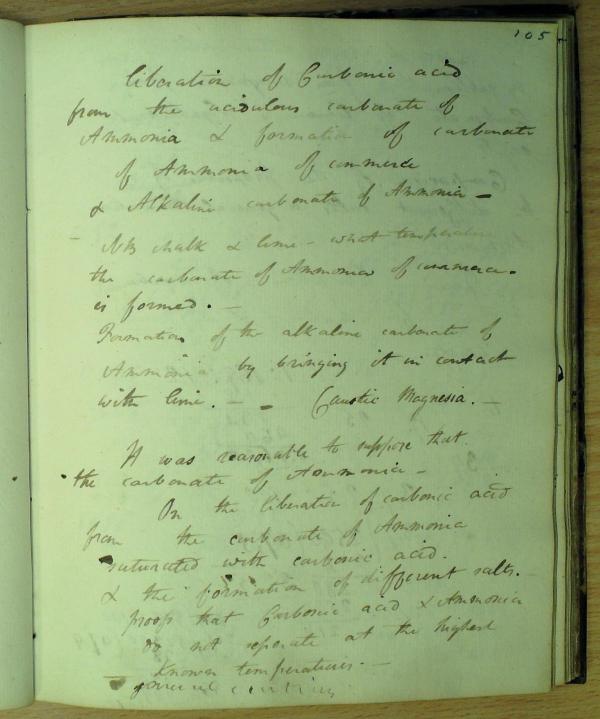 105
liberation of Carbonic acid
from the acidulous carbonate of
Ammonia & formation of carbonate
of Ammonia of commerce
& Alkaline carbonate of Ammonia —
— NB chalk & lime — what temperature
the carbonate of Ammonia of commerce
is formed. —
Formation of the alkaline carbonate of
Ammonia by bringing it in contact
with lime. — — Caustic Magnesia. —
It was reasonable to suppose that
the carbonate of Ammonia —
On the liberation of carbonic acid
from the carbonate of Ammonia
saturated with carbonic acid.
& the formation of different salts. —
proofs that Carbonic acid & Ammonia
do not seperate at the highest
— Known temperatures. —